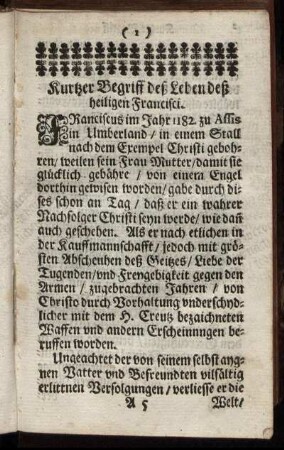 ( 1 )
Kurtzer Begriff deß Leben deß
heiligen Francisci.
FRanciscus im Jahr 1182. zu Assis
in Umberland / in einem Stall
nach dem Exempel Christi geboh-
ren / weilen sein Frau Mutter / damit sie
glücklich gebähre / von einem Engel
dorthin gewisen worden / gabe durch di-
ses schon an Tag / daß er ein wahrer
Nachfolger Christi seyn werde / wie dañ
auch geschehen. Als er nach etlichen in
der Kauffmannschafft / jedoch mit grö-
sten Abscheuhen deß Geitzes / Liebe der
Tugenden / und Freygebigkeit gegen den
Armen / zugebrachten Jahren / von
Christo durch Vorhaltung vnderschyd-
licher mit dem H. Creutz bezaichneten
Waffen und andern Erscheinungen be-
ruffen worden.
Ungeachtet der von seinem selbst ayg-
nen Vatter vnd Befreundten vilfältig
erlittnen Verfolgungen / verliesse er die
A 5 Welt /